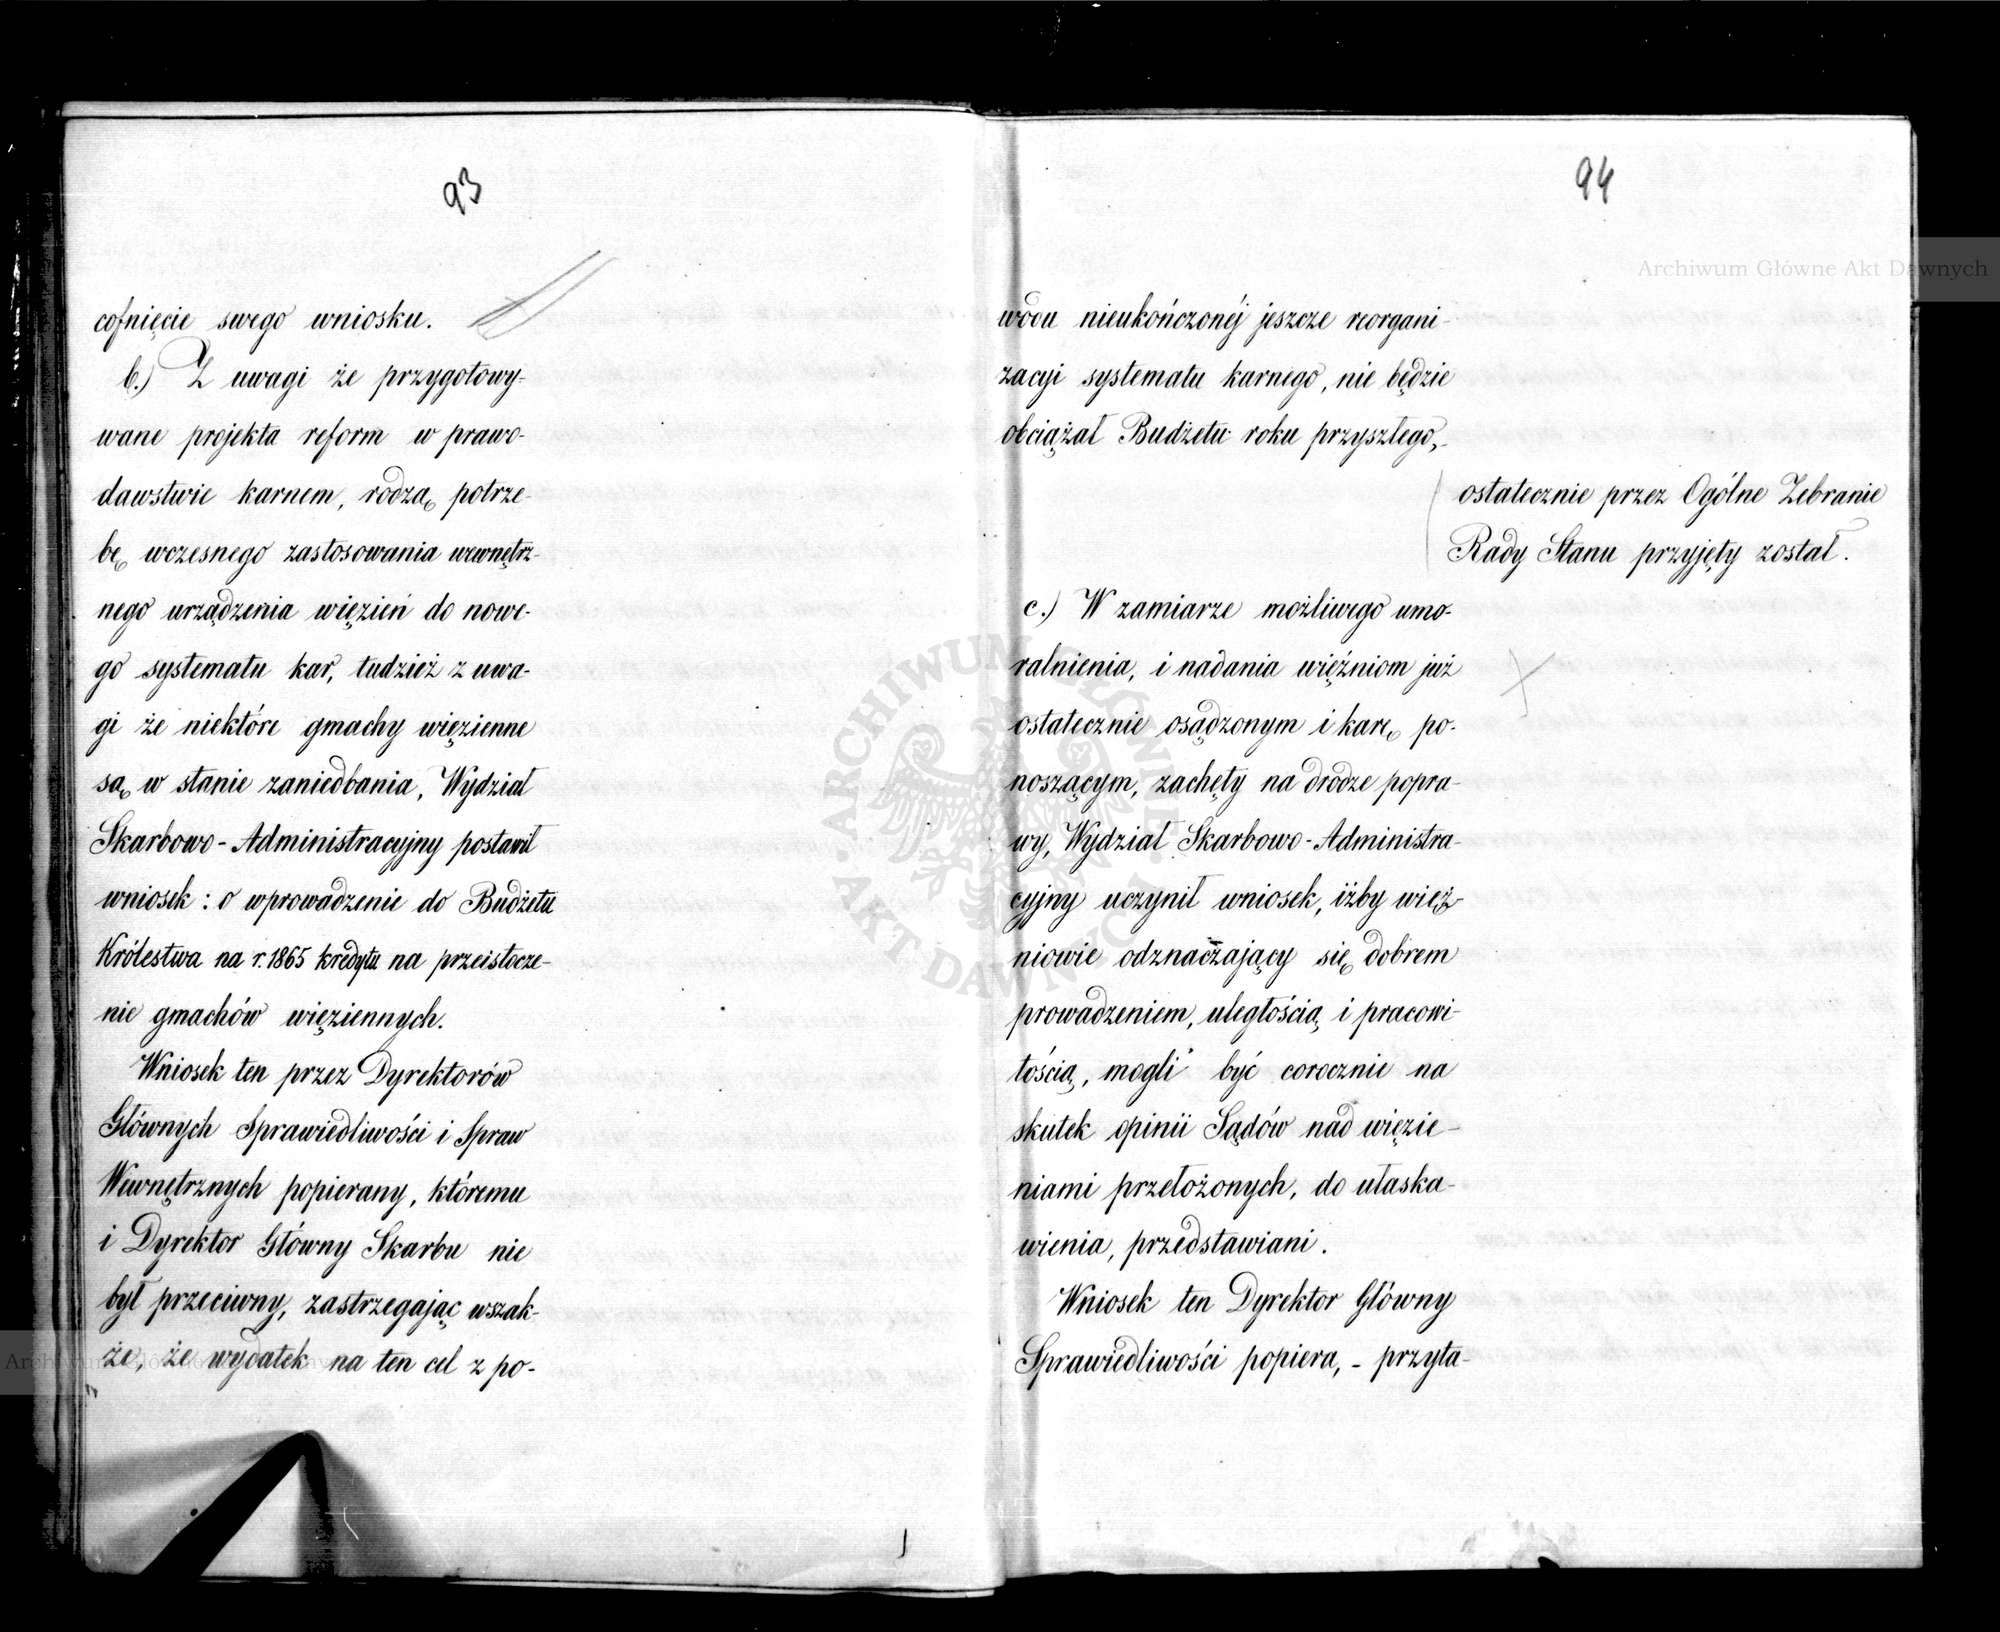 93
cofnięcie swego wniosku.
b.) Z uwagi że przygotowy-
wane projekta reform w prawo-
dawstwie karnem, rodzą potrze-
bę wczesnego zastosowania wewnętrz-
nego urządzenia więzień do nowe-
go systematu kar, tudzież z uwa-
gi że niektóre gmachy więzienne
są w stanie zaniedbania, Wydział
Skarbowo-Administracyjny postawił
wniosek: o wprowadzenie do Budżetu
Królestwa na r. 1865 kredytu na przeistocze-
nie gmachów więziennych.
Wniosek ten przez Dyrektorów
Głównych Sprawiedliwości i Spraw
Wewnętrznych popierany, któremu
i Dyrektor Główny Skarbu nie
był przeciwny, zastrzegając wszak-
że, że wydatek na ten cel z po-
94
wodu nieukończonéj jeszcze reorgani-
zacyi systematu karnego, nie będzie
obciążał Budżetu roku przyszłego,
ostatecznie przez Ogólne Zebranie
Rady Stanu przyjęty został.
c.) W zamiarze możliwego umo-
ralnienia, i nadania więźniom już
ostatecznie osądzonym i karę po-
noszącym, zachęty na drodze popra-
wy, Wydział Skarbowo-Administra-
cyjny uczynił wniosek, iżby więź-
niowie odznaczający się dobrem
prowadzeniem, uległością i pracowi-
tością, mogli być corocznie na
skutek opinii Sądów nad więzie-
niami przełożonych, do ułaska-
wienia, przedstawiani.
Wniosek ten Dyrektor Główny
Sprawiedliwości popiera, - przyta-
Archiwum Główne Akt Dawnych
ARCHIWUM GŁÓWNE AKT DAWNYCH